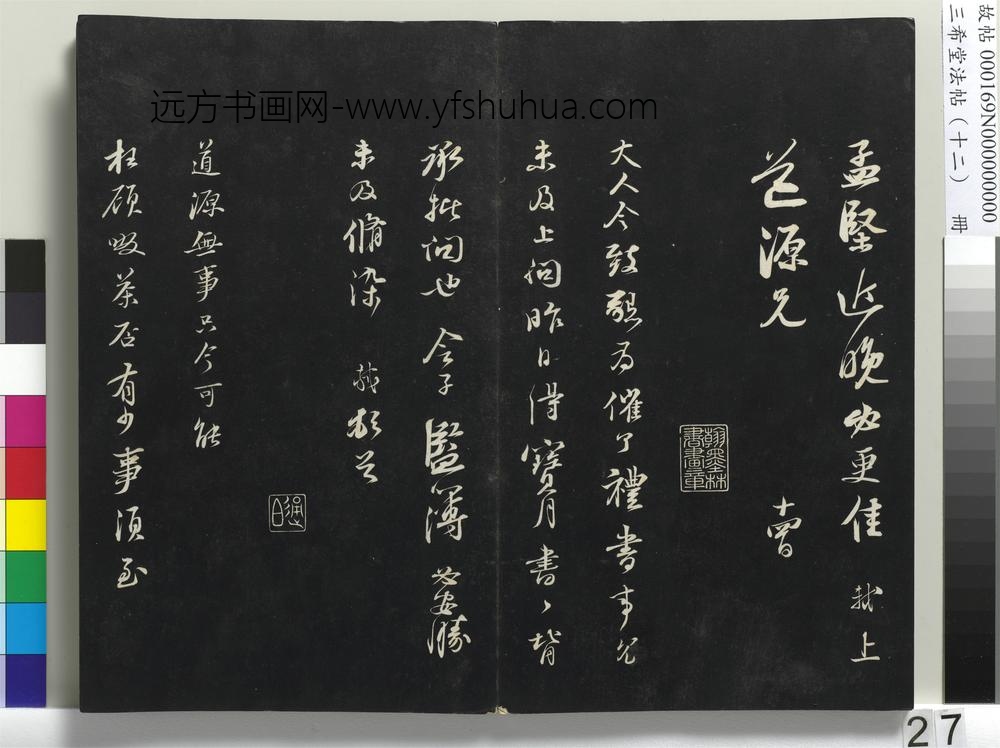 故帖 000169N000000000
三希堂法帖（十二） 冊
远方书画网-www.yfshuhua.com
孟堅近晚必更佳 軾上
道源兄 十四日
翰墨林書畫章
大人令致懇為催了禮書事冗
未及上問昨日得寶月書〻背
承批問也 令子監簿必安勝
未及脩染 軾頓首
道源無事只今可能
枉顧啜茶否有少事須至
27